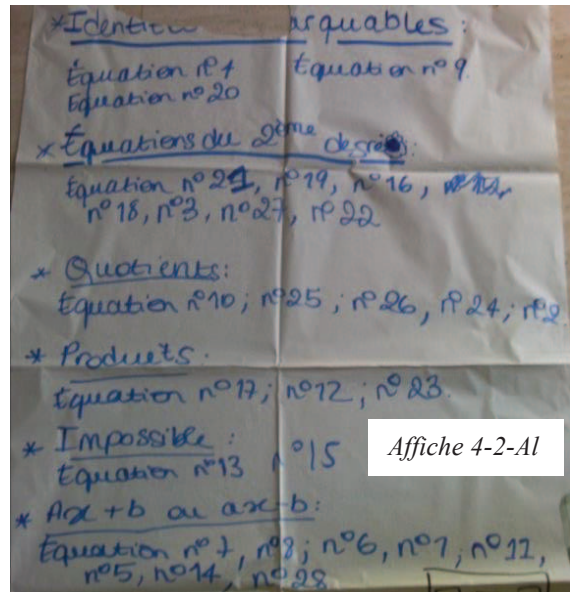 *Identi arquables :
Équation nº 4 Équation nº 9
Equation nº 20
* Équations du 2ème degré :
Équation nº 21, nº 19, nº 16,
nº 18, nº 3, nº 27, nº 22
* Quotients :
Équation nº 10 ; nº 25 ; nº 26, nº 24 ; nº 2
* Produits :
Équation nº 17 ; nº 12 ; nº 23.
* Impossible :
Equation nº 13 nº 15
Affiche 4-2-Al
* Ax + b ou ax - b :
Équation nº 7, nº 8 ; nº 6, nº 1 ; nº 11,
nº 5, nº 14, nº 28